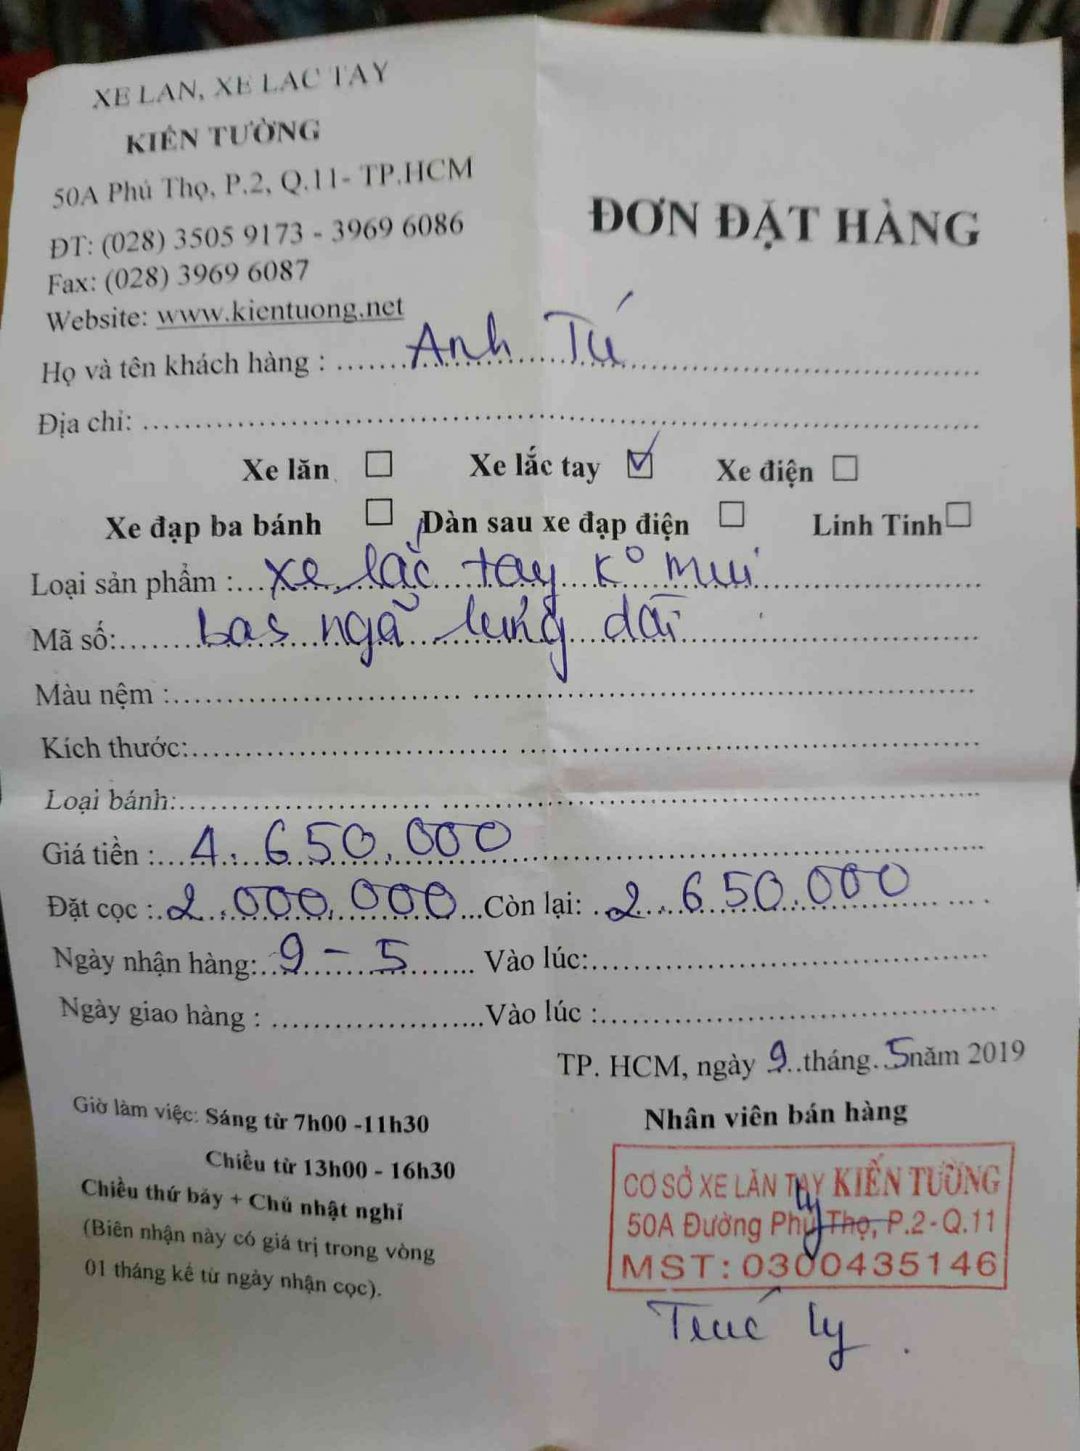 XE LAN, XE LAC TAY
KIÊN TƯỜNG
50A Phú Thọ, P.2, Q.11- TP.HCM
ĐT: (028) 3505 9173 - 3969 6086
Fax: (028) 3969 6087
Website: www.kientuong.net
ĐƠN ĐẶT HÀNG
Họ và tên khách hàng : Anh Tú
Địa chỉ:
Xe lăn ☐ Xe lắc tay ☑ Xe điện ☐
Xe đạp ba bánh ☐ Dàn sau xe đạp điện ☐ Linh Tinh ☐
Loại sản phẩm : xe lắc tay K° mui
Mã số: bas ngã lưng dài
Màu nệm :
Kích thước:
Loại bánh:
Giá tiền : 4.650.000
Đặt cọc : 2.000.000 Còn lại: 2.650.000
Ngày nhận hàng: 9 - 5 Vào lúc:
Ngày giao hàng : Vào lúc :
TP. HCM, ngày 9 tháng 5 năm 2019
Giờ làm việc: Sáng từ 7h00 -11h30
Chiều từ 13h00 - 16h30
Chiều thứ bảy + Chủ nhật nghỉ
(Biên nhận này có giá trị trong vòng
01 tháng kể từ ngày nhận cọc).
Nhân viên bán hàng
CƠ SỞ XE LĂN TAY KIẾN TƯỜNG
50A Đường Phú Thọ, P.2 - Q.11
MST: 0300435146
ly
Trúc ly